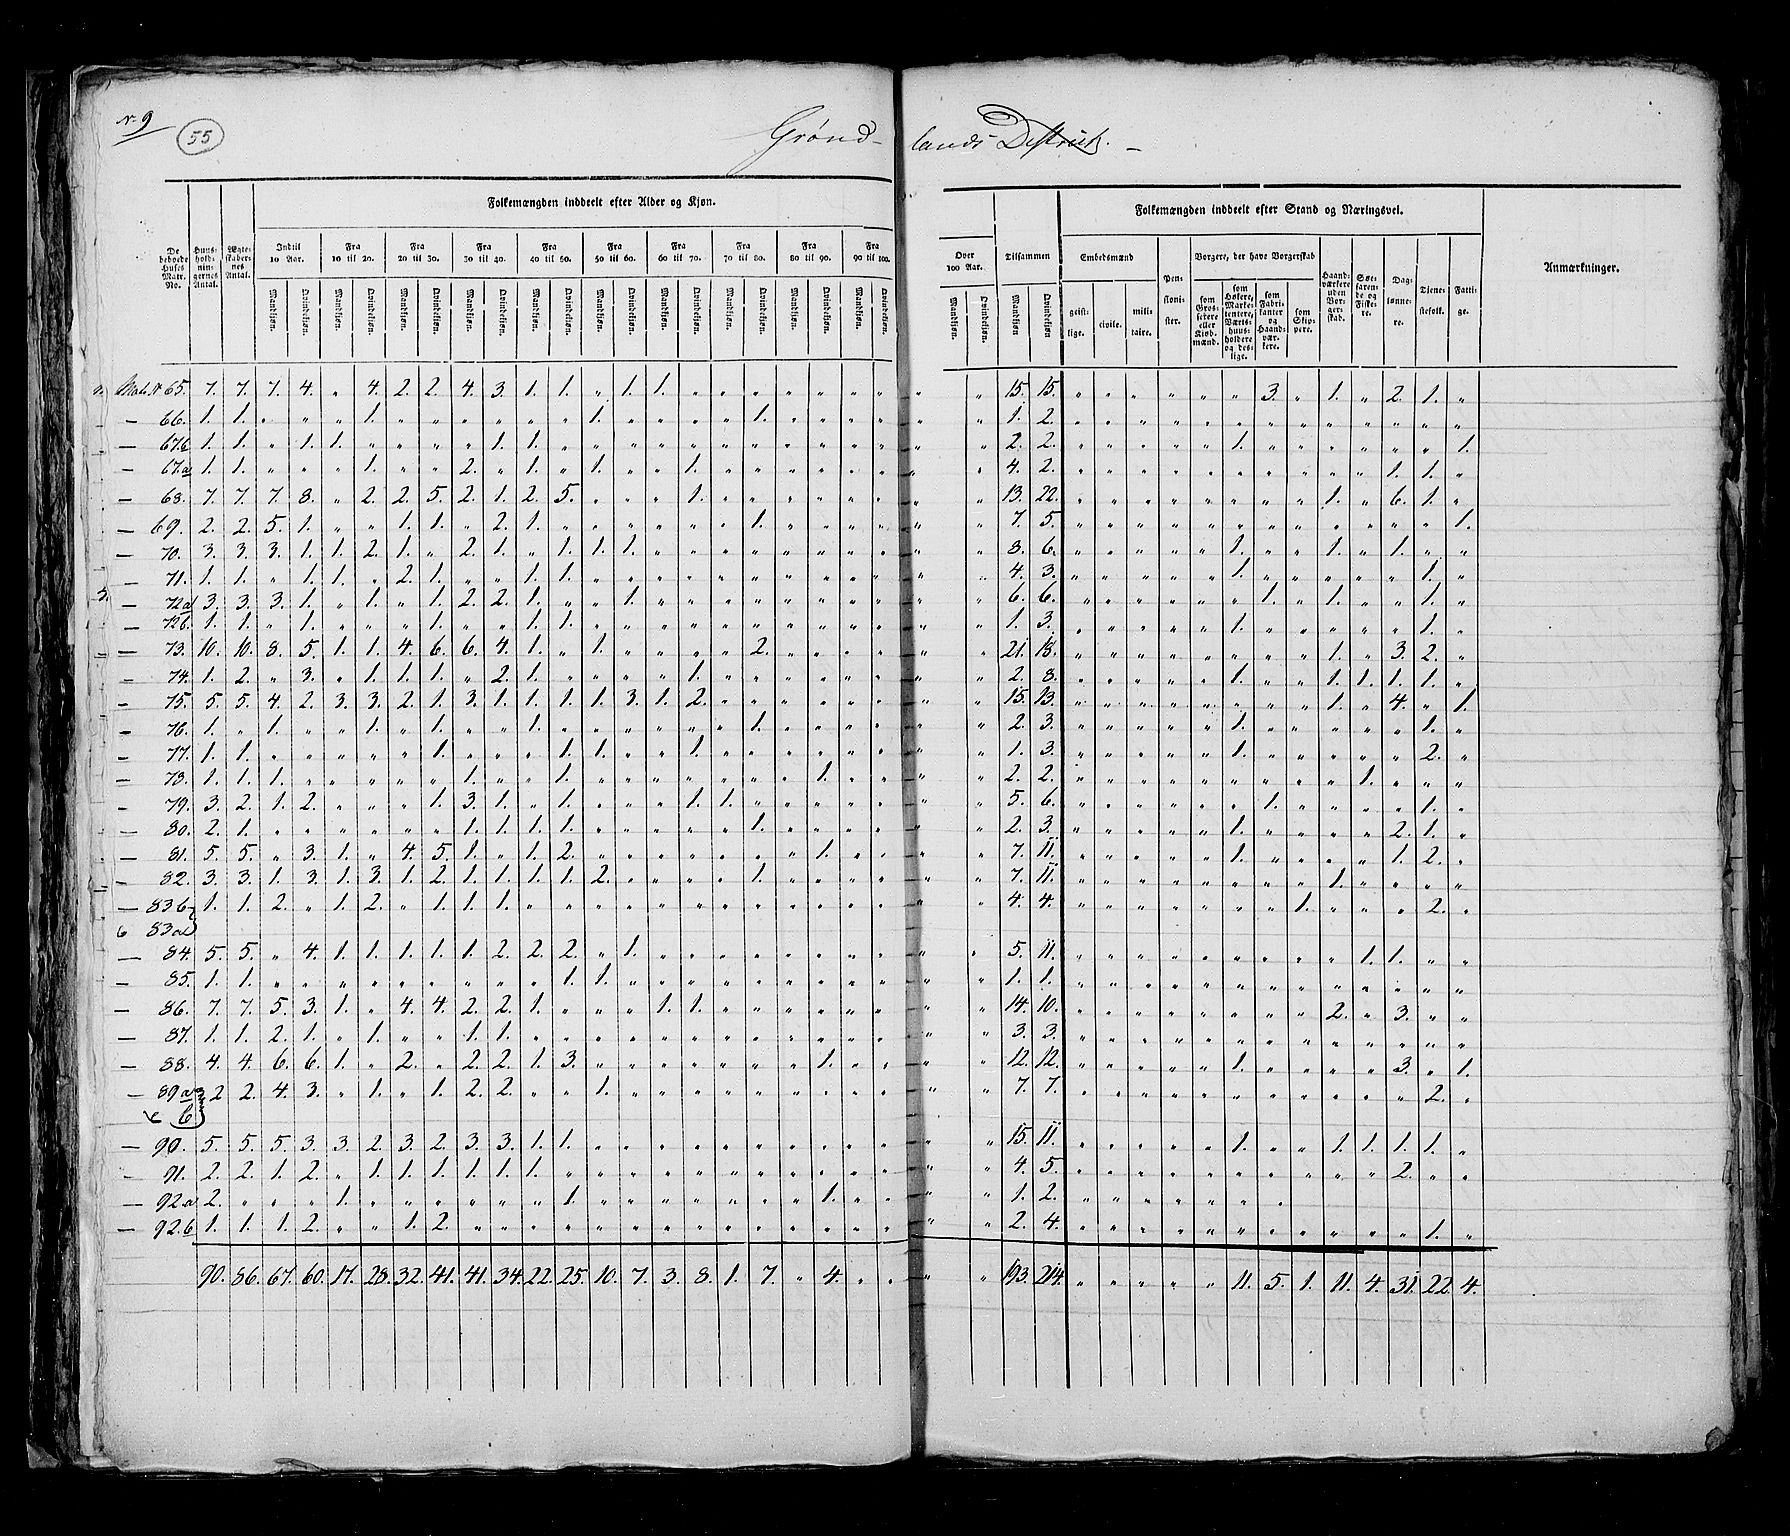 N. 9
55
Grønd-lands District. –
Folkemængden inddeelt efter Alder og Kjøn.
Folkemængden inddeelt efter Stand og Næringsvei.
De beboede Huses Matr. No.
Huus-hold-nin-gernes Antal.
Ægte-skaber-nes Antal.
Indtil 10 Aar.
Fra 10 til 20.
Fra 20 til 30.
Fra 30 til 40.
Fra 40 til 50.
Fra 50 til 60.
Fra 60 til 70.
Fra 70 til 80.
Fra 80 til 90.
Fra 90 til 100.
Over 100 Aar.
Tilsammen
Mandkjøn. Qvindekjøn.
Embedsmænd
geist-lige. civile. mili-taire.
Pen-sioni-ster.
Borgere, der have Borgerskab
som Gros-serere eller Kjøb-mænd.
som Høkere, Marke-tentere, Værts-huus-holdere og des-lige.
som Fabri-kanter og Haand-vær-kere.
som Skip-pere.
Haand-værkere uden Bor-ger-skab.
Søe-farende og Fiske-re.
Dag-lønne-re.
Tjene-stefolk.
Fatti-ge.
Anmærkninger.
Matr. N 65. 7. 7. 7. 4. „ 4. 2. 2. 4. 3. 1. 1. „ 1. 1. „ „ „ „ „ „ „ „ „ 15. 15. „ „ „ „ „ „ 3. „ 1. „ 2. 1. „
— 66. 1. 1. „ „ „ 1. „ „ „ „ „ „ 1. „ „ „ „ 1. „ „ „ „ „ „ 1. 2. „ „ „ „ „ „ „ „ „ „ „ „ „
— 67.b 1. 1. „ 1. 1. „ „ „ „ 1. 1. „ „ „ „ „ „ „ „ „ „ „ „ „ 2. 2. „ „ „ „ „ 1. „ „ „ „ „ „ 1.
— 67.a 1. 1. „ „ „ 1. „ „ 2. „ 1. „ 1. „ „ 1. „ „ „ „ „ „ „ „ 4. 2. „ „ „ „ „ „ „ „ „ „ 1. 1. „
— 68. 7. 7. 7. 8. „ 2. 2. 5. 2. 1. 2. 5. „ „ „ 1. „ „ „ „ „ „ „ „ 13. 22. „ „ „ „ „ „ „ „ 1. „ 6. 1. „
— 69. 2. 2. 5. 1. „ „ 1. 1. „ 2. 1. „ „ „ „ „ „ 1. „ „ „ „ „ „ 7. 5. „ „ „ „ „ „ „ „ „ „ „ „ 1.
— 70. 3. 3. 3. 1. 1. 2. 1. „ 2. 1. „ 1. 1. 1. „ „ „ „ „ „ „ „ „ „ 8. 6. „ „ „ „ „ 1. „ „ 1. „ 1. „ „
— 71. 1. 1. „ 1. 1. „ 2. 1. „ „ 1. 1. „ „ „ „ „ „ „ „ „ „ „ „ 4. 3. „ „ „ „ „ 1. „ „ „ „ „ 1. „
— 72a 3. 3. 3. 1. „ 1. „ 1. 2. 2. 1. „ „ 1. „ „ „ „ „ „ „ „ „ „ 6. 6. „ „ „ „ „ „ 1. „ 1. „ „ 1. „
— 72b. 1. 1. „ 1. „ „ „ 1. „ „ 1. 1. „ „ „ „ „ „ „ „ „ „ „ „ 1. 3. „ „ „ „ „ 1. „ „ „ „ „ 1. „
— 73. 10. 10. 8. 5. 1. 1. 4. 6. 6. 4. 1. „ 1. „ „ „ „ 2. „ „ „ „ „ „ 21. 18. „ „ „ „ „ „ „ „ 1. „ 3. 2. „
— 74. 1. 2. „ 3. „ 1. 1. 1. „ 2. 1. „ „ „ „ 1. „ „ „ „ „ „ „ „ 2. 8. „ „ „ „ „ 1. „ „ 1. 1. 1. 1. „
— 75. 5. 5. 4. 2. 3. 3. 2. 1. 3. 1. 1. 1. 1. 3. 1. 2. „ „ „ „ „ „ „ „ 15. 13. „ „ „ „ „ „ „ „ 1. „ 4. „ 1.
— 76. 1. „ 1. „ „ 1. „ 1. „ „ 1. „ „ „ „ „ „ 1. „ „ „ „ „ „ 2. 3. „ „ „ „ „ 1. „ „ „ „ „ 1. „
— 77. 1. 1. „ „ „ „ „ 1. „ „ „ 1. 1. „ „ 1. „ „ „ „ „ „ „ „ 1. 3. „ „ „ „ „ 1. „ „ „ „ „ 2. „
— 78. 1. 1. 1. „ „ „ „ „ 1. „ „ 1. „ „ „ „ „ „ „ 1. „ „ „ „ 2. 2. „ „ „ „ „ „ „ „ „ 1. „ „ „
— 79. 3. 2. 1. 2. „ „ „ 1. 3. 1. „ 1. „ „ „ 1. 1. „ „ „ „ „ „ „ 5. 6. „ „ „ „ „ „ 1. „ „ „ „ 1. „
— 80. 2. 1. „ „ „ „ „ „ 1. 1. 1. 1. „ „ „ „ „ 1. „ „ „ „ „ „ 2. 3. „ „ „ „ „ 1. „ „ „ „ 2. 1. „
— 81. 5. 5. „ 3. 1. „ 4. 5. 1. „ 1. 2. „ „ „ „ „ „ „ 1. „ „ „ „ 7. 11. „ „ „ „ „ 1. „ „ „ „ 1. 2. „
— 82. 3. 3. 1. 3. 1. 3. 1. 2. 1. 1. 1. 1. 2. „ „ „ „ 1. „ „ „ „ „ „ 7. 11. „ „ „ „ „ „ „ „ 1. „ „ „ „
— 83b 1. 1. 2. „ 1. 2. „ 1. 1. 1. „ „ „ „ „ „ „ „ „ „ „ „ „ „ 4. 4. „ „ „ „ „ „ „ 1. „ „ „ 2. „
6 83a
— 84. 5. 5. „ 4. 1. 1. 1. 1. 1. 2. 2. 2. „ 1. „ „ „ „ „ „ „ „ „ „ 5. 11. „ „ „ „ „ „ „ „ „ 1. 1. „ „
— 85. 1. 1. „ „ „ „ „ „ „ „ „ 1. 1. „ „ „ „ „ „ „ „ „ „ „ 1. 1. „ „ „ „ „ „ „ „ „ „ „ „ „
— 86. 7. 7. 5. 3. 1. „ 4. 4. 2. 2. 1. „ „ „ 1. 1. „ „ „ „ „ „ „ „ 14. 10. „ „ „ „ „ „ „ „ 2. „ 3. „ „
— 87. 1. 1. 2. 1. „ 1. „ „ 1. 1. „ „ „ „ „ „ „ „ „ „ „ „ „ „ 3. 3. „ „ „ „ „ „ „ „ „ „ „ „ „
— 88. 4. 4. 6. 6. 1. „ 2. „ 2. 2. 1. 3. „ „ „ „ „ „ „ 1. „ „ „ „ 12. 12. „ „ „ „ „ 1. „ „ „ „ 3. „ 1.
— 89a 2 2. 4. 3. „ 1. „ 1. 2. 2. „ „ 1. „ „ „ „ „ „ „ „ „ „ „ 7. 7. „ „ „ „ „ „ „ „ „ „ „ 2. „
b
— 90. 5. 5. 5. 3. 3. 2. 3. 2. 3. 3. 1. 1. „ „ „ „ „ „ „ „ „ „ „ „ 15. 11. „ „ „ „ „ 1. „ „ 1. 1. 1. 1. „
— 91. 2. 2. 1. 2. „ 1. 1. 1. 1. 1. 1. „ „ „ „ „ „ „ „ „ „ „ „ „ 4. 5. „ „ „ „ „ „ „ „ „ „ 2. „ „
— 92a 2. „ „ „ 1. „ „ „ „ „ „ 1. „ „ „ „ „ „ „ 1. „ „ „ „ 1. 2. „ „ „ „ „ „ „
— 92.b 1. 1. 1. 2. „ „ 1. 2. „ „ „ „ „ „ „ „ „ „ „ „ „ „ „ „ 2. 4. „ „ „ „ „ „ „ „ „ „ „ 1. „
90. 86. 67. 60. 17. 28. 32. 41. 41. 34. 22. 25. 10. 7. 3. 8. 1. 7. „ 4. „ „ „ „ 193. 214. „ „ „ „ „ 11. 5. 1. 11. 4. 31. 22. 4.